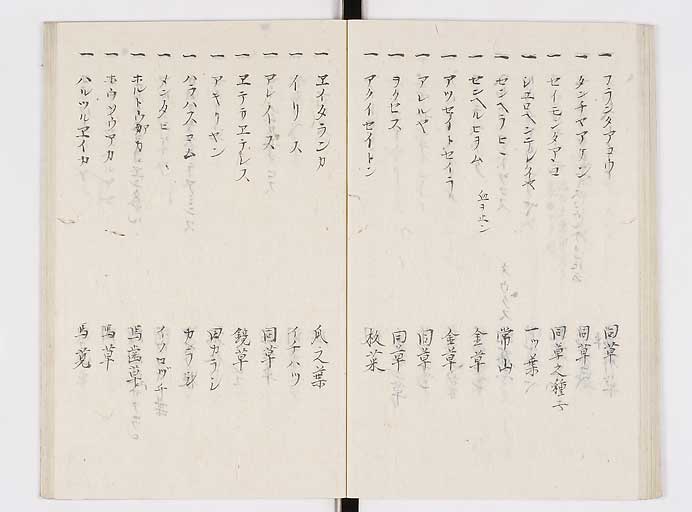 一 フランダアコウ 同草
一 タンチヤアケン 同草
一 セイモンダアンコ 同草之種子
一 シエロヘンニレイヤ 一ツ葉
一 センヘラヒ 常山
一 センヘルヒヨム 血ヲ止ン 金草
一 アツセイトセイラ 金草
一 アレルヤ 同草
一 ヨクヒス 同草
一 アクイセイトン 敗菜
一 ヱイタランカ 瓜之葉
一 イリス イチハツ
一 アレイス 同草
一 ヱテラヱテレス 鏡草
一 アキリヤン 田カラシ
一 ハラハスコム カラシ
一 メンタヒ
一 ホルトウガカ 馬歯草
一 ホウソウアカ 馬草
一 ハルツルヱイカ 馬莧